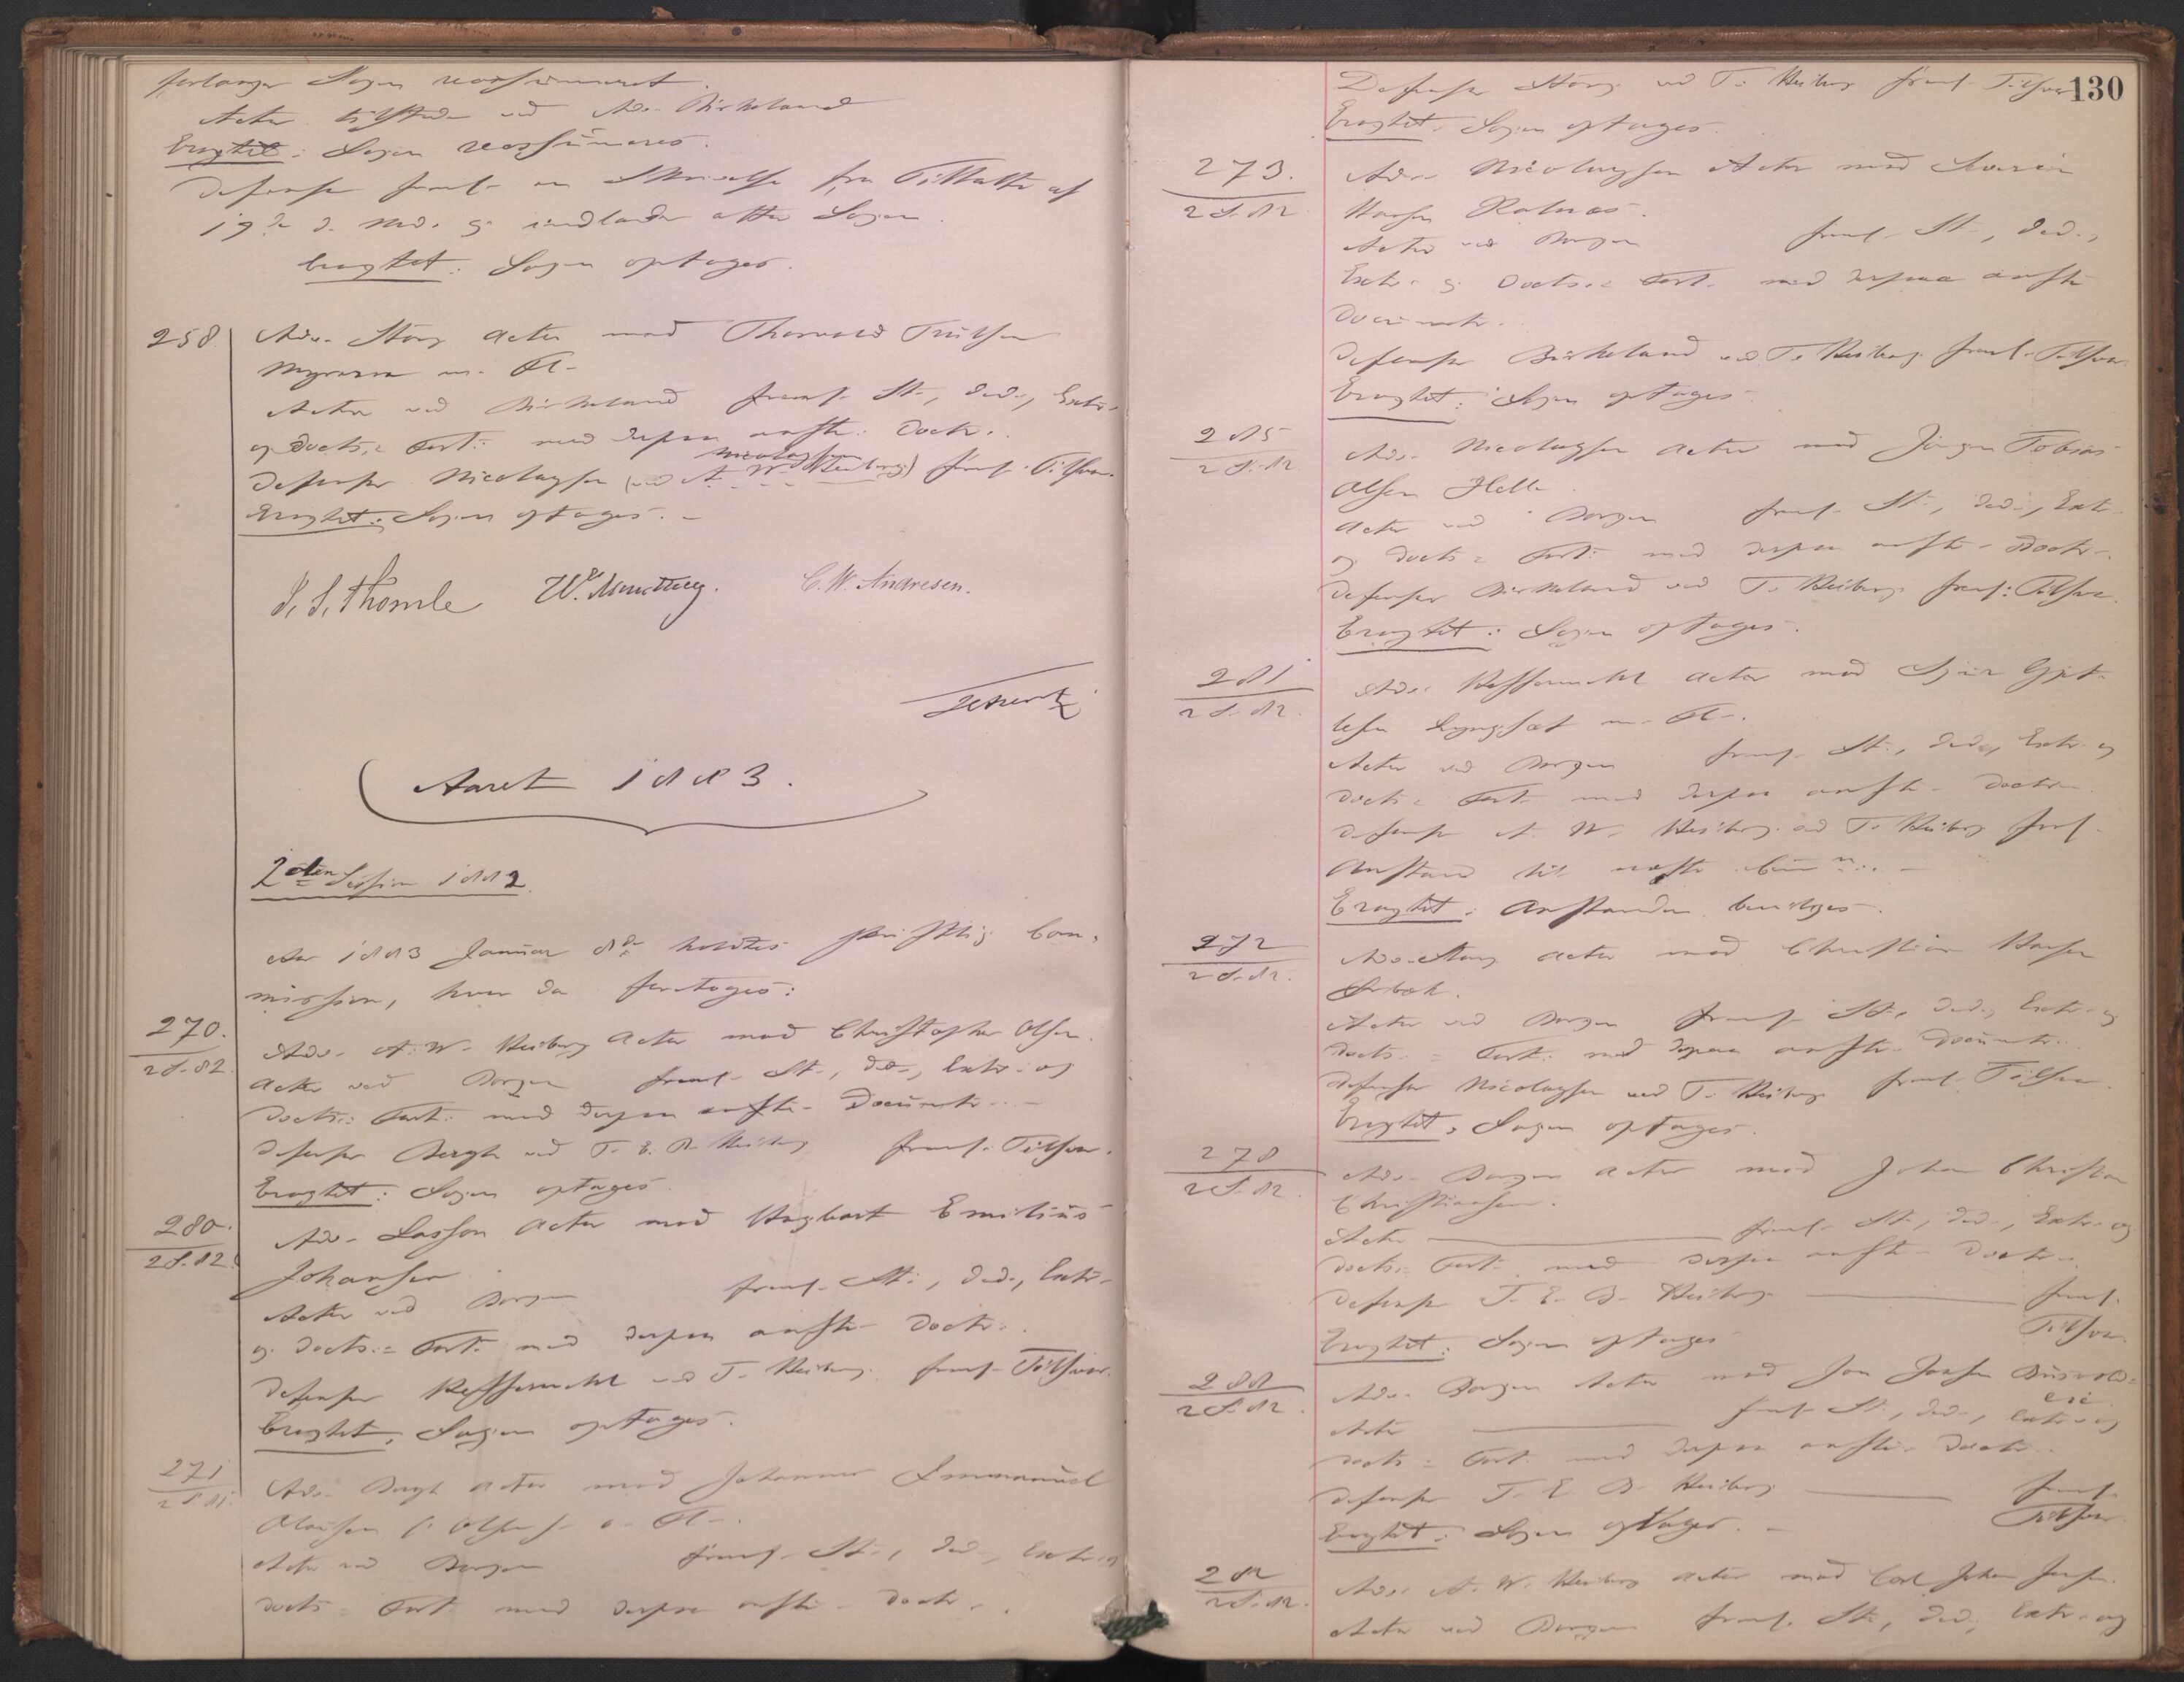 forlanger Sagen reassumeret.
Actor tilstede ved Adv. Birkeland
Eragtet: Sagen reassumeres.
Defensor freml. en Skrivelse fra Tiltalte af
19de d. Md. og indlader atter Sagen.
Eragtet: Sagen optages.
258 Adv. Stang Actor mod Thorvald Trulsen
Myraren m. Fl.
Actor ved Birkeland freml. St., Ded., Extr.
og Docts.= Fort. med derpaa anførte Doctr.
Nicolaysen
Defensor Nicolaysen (ved A. W. Heiberg) freml. Tilsvar.
Eragtet: Sagen optages.
S. S. Thomle W. Munthe C. W. Andresen.
Aaret 1883.
2den Session 1882
Aar 1883 Januar 8de holdtes skriftlig Com-
mission, hvor da foretoges:
270.
2 S. 82 Adv. A. W. Heiberg Actor mod Christopher Olsen.
Actor ved Borgen freml. St., Ded., Extr. og
Docts.= Fort. med derpaa anførte Documenter.
Defensor Bergh ved T. E. B. Heiberg freml. Tilsvar.
Eragtet: Sagen optages.
280.
2 S. 82 Adv. Lasson Actor mod Hagbart Emilius
Johansen
Actor ved Borgen freml. St., Ded., Extr.
og Docts.= Fort. med derpaa anførte Doctr.
Defensor ved T. Heiberg freml. Tilsvar.
Eragtet: Sagen optages.
271
2 S. 82 Adv. Bergh Actor mod Johannes Emmanuel
Olaisen (: Olsen :) m. Fl.
Actor ved Borgen freml. St., Ded., Extr. og
Docts.= Fort. med derpaa anførte Doctr.
130
Defensor Stang ved T. Heiberg freml. Tilsvar
Eragtet: Sagen optages.
273.
2 S. 82 Adv. Nicolaysen Actor mod
Hansen
Actor ved Borgen freml. St., Ded.,
Extr. og Docts.= Fort. med derpaa anførte
Documenter.
Defensor Birkeland ved T. Heiberg freml. Tilsvar.
Eragtet: Sagen optages.
285
2 S. 82 Adv. Nicolaysen Actor mod Jørgen Tobias
Olsen Helle.
Actor ved Borgen freml. St., Ded., Extr.
og Docts.= Fort. med derpaa anførte Doctr.
Defensor Birkeland ved T. Heiberg freml: Tilsvar.
Eragtet: Sagen optages.
281
2 S. 82 Adv. Actor mod
m. Fl.
Actor ved Borgen freml. St., Ded., Extr. og
Docts.= Fort. med derpaa anførte Doctr.
Defensor A. W. Heiberg ved T. Heiberg freml.
Anstand til næste Comn.
Eragtet: Anstanden bevilges.
272
2 S. 82. Adv. Stang Actor mod Christian Hansen
Actor ved Borgen freml. St., Ded., Extr. og
Docts.= Fort. med derpaa anførte Documenter.
Defensor Nicolaysen ved T. Heiberg freml. Tilsvar.
Eragtet: Sagen optages.
278
2 S. 82. Adv. Borgen Actor mod Johan Christian
Christiansen.
Actor freml. St., Ded., Extr. og
Docts.= Fort. med derpaa anførte Doctr.
Defensor T. E. B. Heiberg freml.
Tilsvar.
Eragtet: Sagen optages.
288
2 S. 82. Adv. Borgen Actor mod Jon Jonsen
Actor freml. St., Ded., Extr. og
Docts.= Fort. med derpaa anførte Doctr.
Defensor T. E. B. Heiberg freml.
Tilsvar.
Eragtet: Sagen optages.
282
2 S. 82. Adv. A. W. Heiberg Actor mod Carl Johan Jensen.
Actor ved Borgen freml. St., Ded., Extr. og